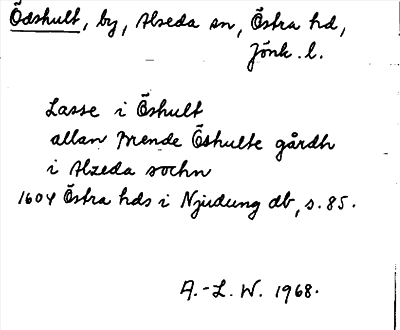 Ödshult, by, Alseda sn, Östra hd,
Jönk. l.
Lasse i Öshult
allan prende Öshulte gårdh
i Alzeda sochn
1604 Östra hds i Njudung db, s. 85.
A.-L. W. 1968.